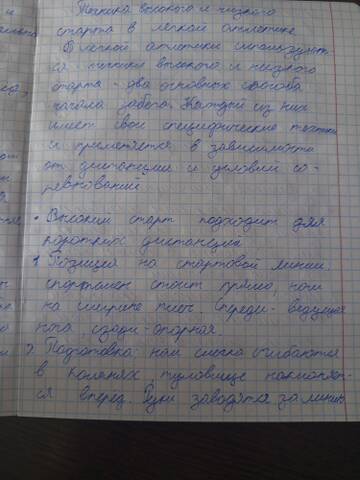 Техника высокого и низкого
старта в легкой атлетике
В легкой атлетики используют
ся техники высокого и низкого
старта - два основных способа
начала забега. Каждый из них
имеет свои специфические техники
и применяется в зависимости
от дистанции и условий со-
ревнований.
• Высокий старт подходит для
коротких дистанции
1. Позиция на стартовой линии.
спортсмен стоит прямо, ноги
на ширине плеч. Спереди - ведущая
нога сзади - опорная.
2. Подготовка: ноги слегка сгибаются
в коленях туловище наклоняет-
ся вперед. Руки заводятся за линию